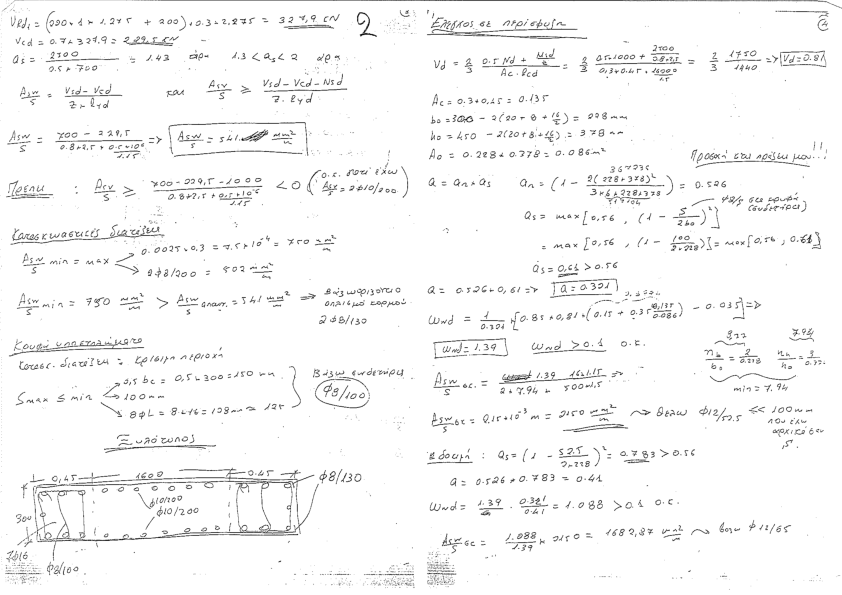 2
V_Rd1 = (290 * 1 * 1.275 + 200) * 0.3 * 2.275 = 327,9 kN
Vcd = 0.7 * 327.9 = 229.5 kN
as = 2500 / 0.5 * 700 = 1.43 άρα 1.3 < as < 2 άρα
Asw/s = (Vsd - Vcd) / (z * fyd) και Asv/s ≥ (Vsd - Vcd - Nsd) / (z. fyd)
Asw/s = (700 - 229,5) / (0.8 * 2,5 * 0.5 * 10^6/1.15) => Asw/s = 541 mm²/m
Πρέπει : Asv/s ≥ (700 - 229,5 - 1000) / (0.8 * 2,5 * 0.5 * 10^6/1.15) < 0 (ο.κ. διότι έχω Asv/s = 2Φ10/200)
Κατασκευαστικές διατάξεις
Asw/s min = max
0.0025 * 0.3 = 7,5 * 10^-4 = 750 mm²/m
2Φ8/200 = 502 mm²/m
Asw/s min = 750 mm²/m > Asw/s απαιτ. = 541 mm²/m => Βάζω οριζόντιο
οπλισμό κορμού
2Φ8/130
Κρυφά υποστυλώματα
κατασκ. διατάξεις : κρίσιμη περιοχή
Smax ≤ min
0,5 bc = 0,5 * 300 = 150 mm
100 mm
8ΦL = 8 * 16 = 128 mm
Βάζω συνδετήρες
Φ8/100
Ξυλότυπος
0,45 1600 0.45
Φ8/130
Φ10/200
Φ10/200
300
7Φ16
Φ8/100
4
Έλεγχος σε περίσφιξη
Vd = 2/3 (0.5 Nd + Msd/z) / (Ac. fcd) = 2/3 (0.5 * 1000 + 2500/0.8 * 2.5) / (0.3 * 0.45 * 16000/1.5) = 2/3 1750/1440 => Vd = 0.81
Ac = 0.3 * 0,45 = 0.135
bo = 300 - 2(20 + 8 + 16/2) = 228 mm
ho = 450 - 2(20 + 8 + 16/2) = 378 mm
Ao = 0.228 * 0.378 = 0.086 m²
Προσοχή στις πράξεις μου...!!
a = an * as an = (1 - 2(228 + 378)² / 3 * 6 * 228 * 378) = 0.526
as = max [0,56 , (1 - S/2bo)²]
= max [0,56 , (1 - 100/2 * 228)] = max [0,56 , 0.61]
as = 0,61 > 0.56
a = 0.526 * 0,61 => a = 0.321
ωwd = 1/0.321 * [0.85 * 0,81 * (0.15 + 0.35 0,135/0.086) - 0.035] =>
ωwd = 1.39 ωwd > 0.1 ο.κ.
min = 7.94
Asw/s σc = 1.39 16 * 1.15 / 2 * 7.94 * 500 * 1.5 =>
Asw/s σc = 2,15 * 10^-3 m = 2150 mm²/m → Θέλω Φ12/52.5 << 100 mm
που έχω
Β δοκιμή : as = (1 - 52.5/2 * 228)² = 0.783 > 0.56
a = 0.526 * 0.783 = 0.41
ωwd = 1.39 . 0.321/0.41 = 1.088 > 0.1 ο.κ.
Asw/s σc = 1.088/1.39 * 2150 = 1682,87 mm²/m → βάζω Φ12/65